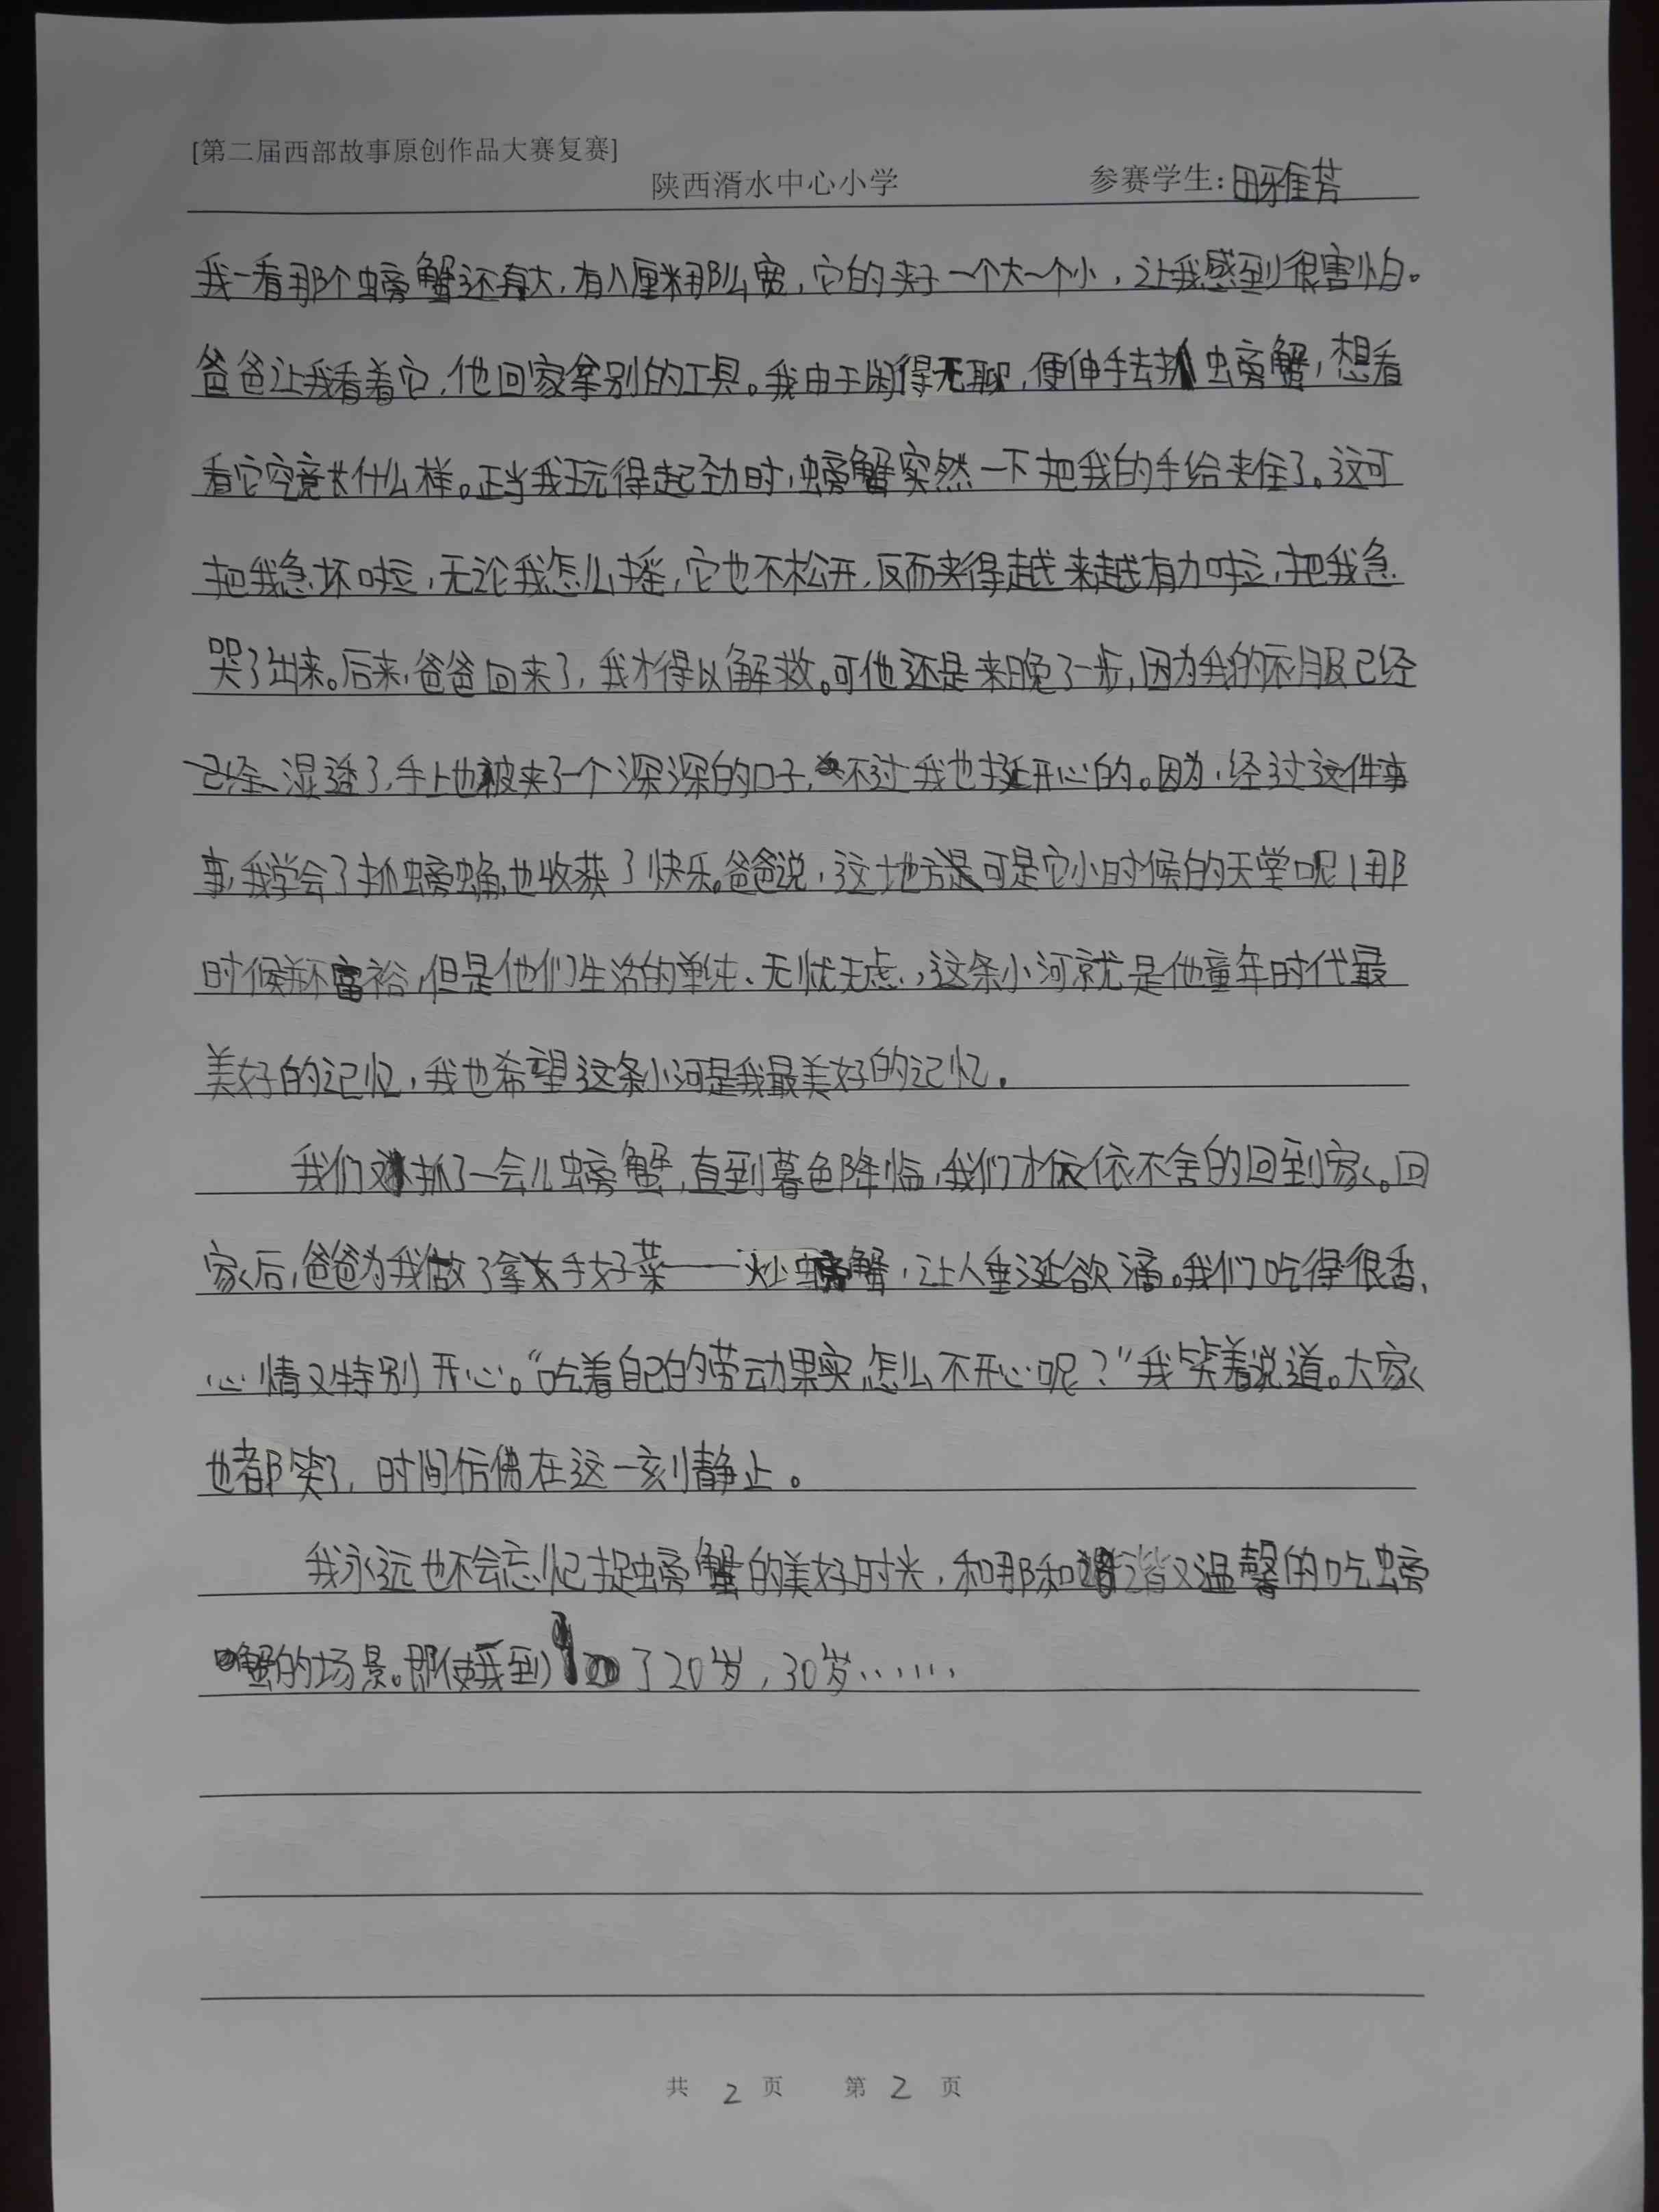 [第二届西部故事原创作品大赛复赛]
陕西湑水中心小学 参赛学生：田雅芳
我一看那个螃蟹还真大，有八厘米那么宽，它的夹子一个大一个小，让我感到很害怕。
爸爸让我看着它，他回家拿别的工具。我由于闲得无聊，便伸手去抓螃蟹，想看
看它究竟长什么样。正当我玩得起劲时，螃蟹突然一下把我的手给夹住了。这可
把我急坏啦，无论我怎么摇，它也不松开，反而夹得越来越有力啦，把我急
哭了出来。后来，爸爸回来了，我才得以解救。可他还是来晚了一步，因为我的衣服已经
已经湿透了，手上也被夹了一个深深的口子，不过我也挺开心的。因为，经过这件事
事，我学会了抓螃蟹，也收获了快乐。爸爸说，这地方可是它小时候的天堂呢！那
时候并不富裕，但是他们生活的单纯、无忧无虑，，这条小河就是他童年时代最
美好的记忆，我也希望这条小河是我最美好的记忆。
我们又抓了一会儿螃蟹，直到暮色降临，我们才依依不舍的回到家。回
家后，爸爸为我做了拿手好菜——炒螃蟹，让人垂涎欲滴。我们吃得很香，
心情又特别开心。“吃着自己的劳动果实，怎么不开心呢？”我笑着说道。大家
也都笑了，时间仿佛在这一刻静止。
我永远也不会忘记捉螃蟹的美好时光，和那和谐又温馨的吃螃
蟹的场景。即使我到了20岁，30岁……
共 2 页 第 2 页